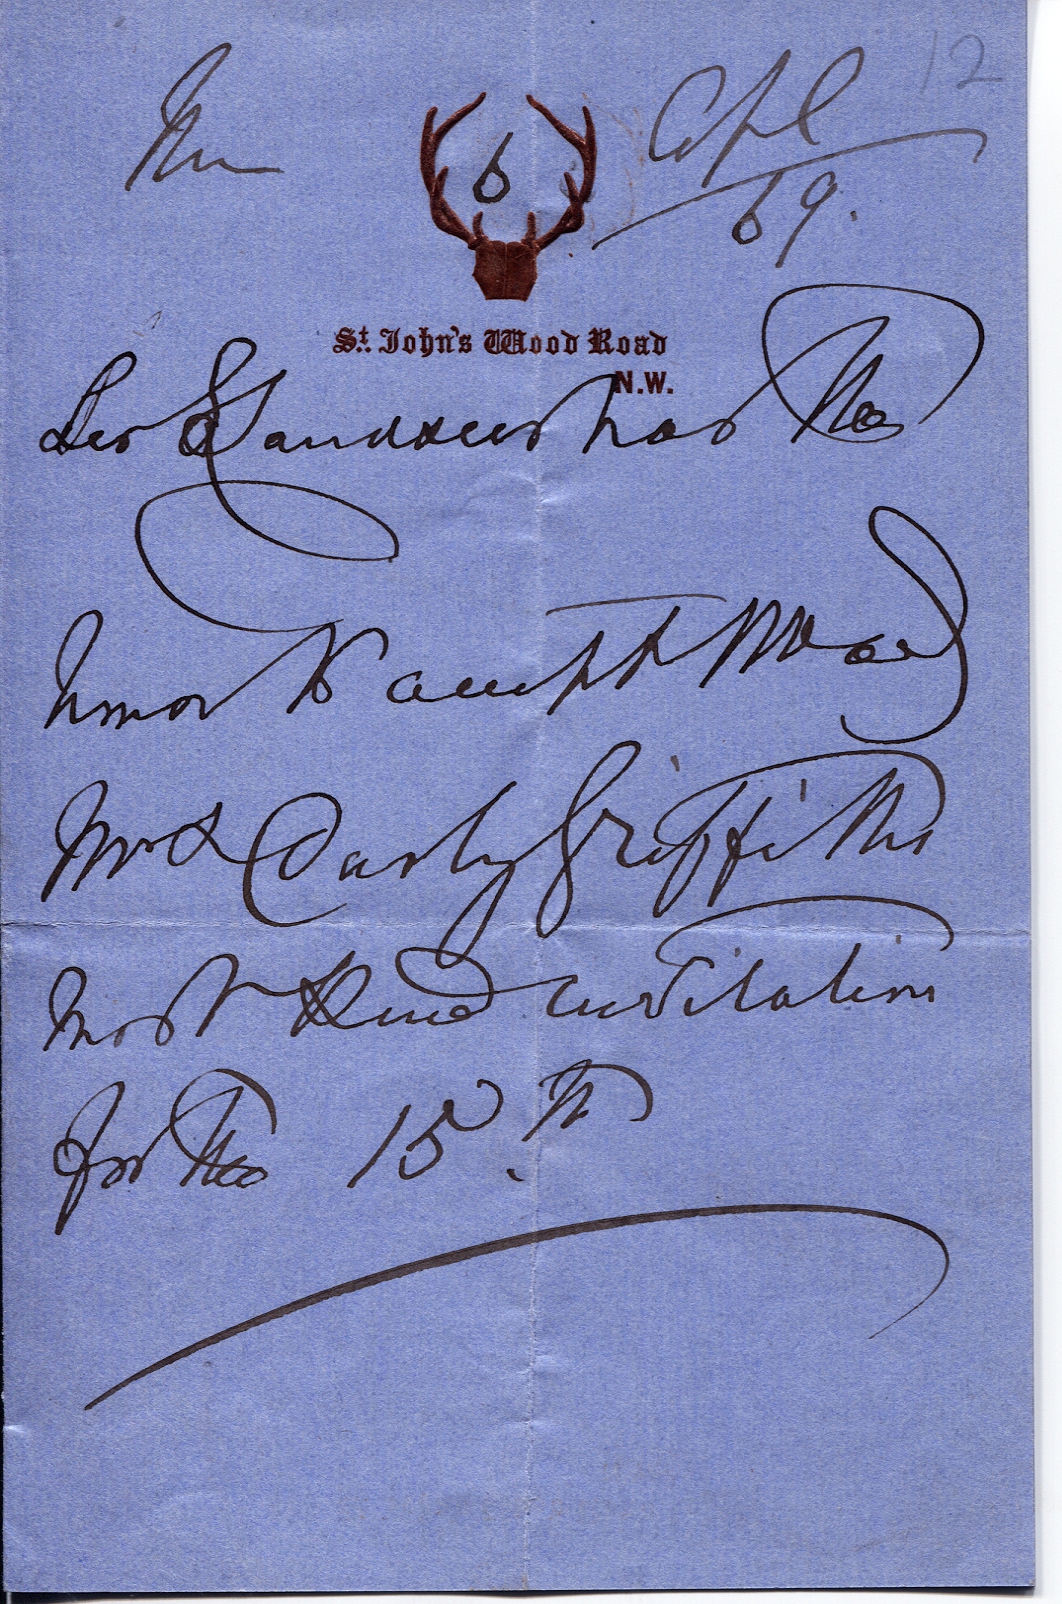 12
6 Apl
69.
St. John's Wood Road
N.W.
Sir Landseer has the
honor to accept Mr and
Mrs Darby Griffiths
most kind invitation
for the 15.th